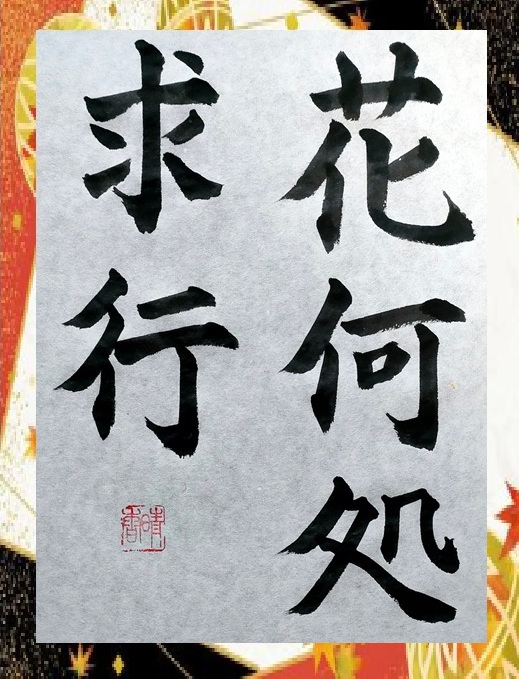 花何処
求行
晴香